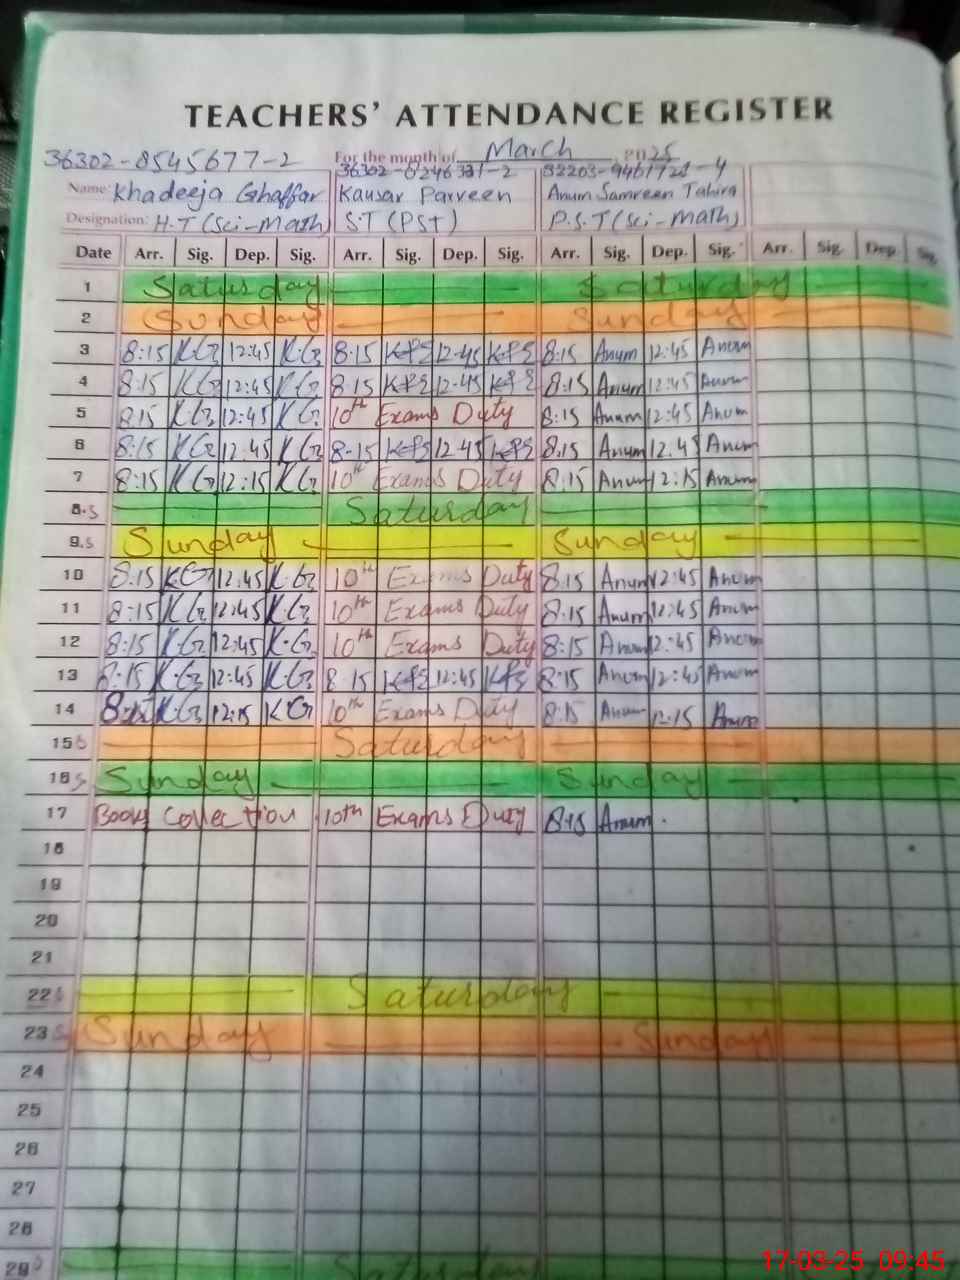 TEACHERS' ATTENDANCE REGISTER
36302-8545677-2 For the month of March 2025
36302-0246331-2 32203-9461721-4
Name: Khadeeja Ghaffar Kausar Parveen Anum Samreen Tahira
Designation: H.T (Sci-Math) S.T (PST) P.S.T (Sci-Math)
Date Arr. Sig. Dep. Sig. Arr. Sig. Dep. Sig. Arr. Sig. Dep. Sig. Arr. Sig. Dep. Sig.
1 Saturday Saturday
2 Sunday Sunday
3 8:15 K.G 12:45 K.G 8:15 12:45 8:15 Anum 12:45 Anum
4 8:15 K.G 12:45 K.G 8:15 12:45 8:15 Anum 12:45 Anum
5 8:15 K.G 12:45 K.G 10th Exams Duty 8:15 Anum 12:45 Anum
6 8:15 K.G 12:45 K.G 8-15 12:45 8:15 Anum 12.45 Anum
7 8:15 K.G 12:15 K.G 10th Exams Duty 8:15 Anum 12:15 Anum
8.S Saturday
9.S Sunday Sunday
10 8:15 K.G 12:45 K.G 10th Exams Duty 8:15 Anum 12:45 Anum
11 8:15 K.G 12:45 K.G 10th Exams Duty 8:15 Anum 12:45 Anum
12 8:15 K.G 12:45 K.G 10th Exams Duty 8:15 Anum 12:45 Anum
13 8:15 K.G 12:45 K.G 8:15 12:45 8:15 Anum 12:45 Anum
14 8:15 K.G 12:15 K.G 10th Exams Duty 8:15 Anum 12:15 Anum
15 S Saturday
16 S Sunday Sunday
17 Books Collection 10th Exams Duty 8:15 Anum
18
19
20
21
22 S Saturday
23 S Sunday Sunday
24
25
26
27
28
29 S Saturday
17-03-25 09:45